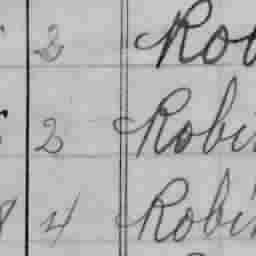 2 Rob
2 Robi
4 Robi